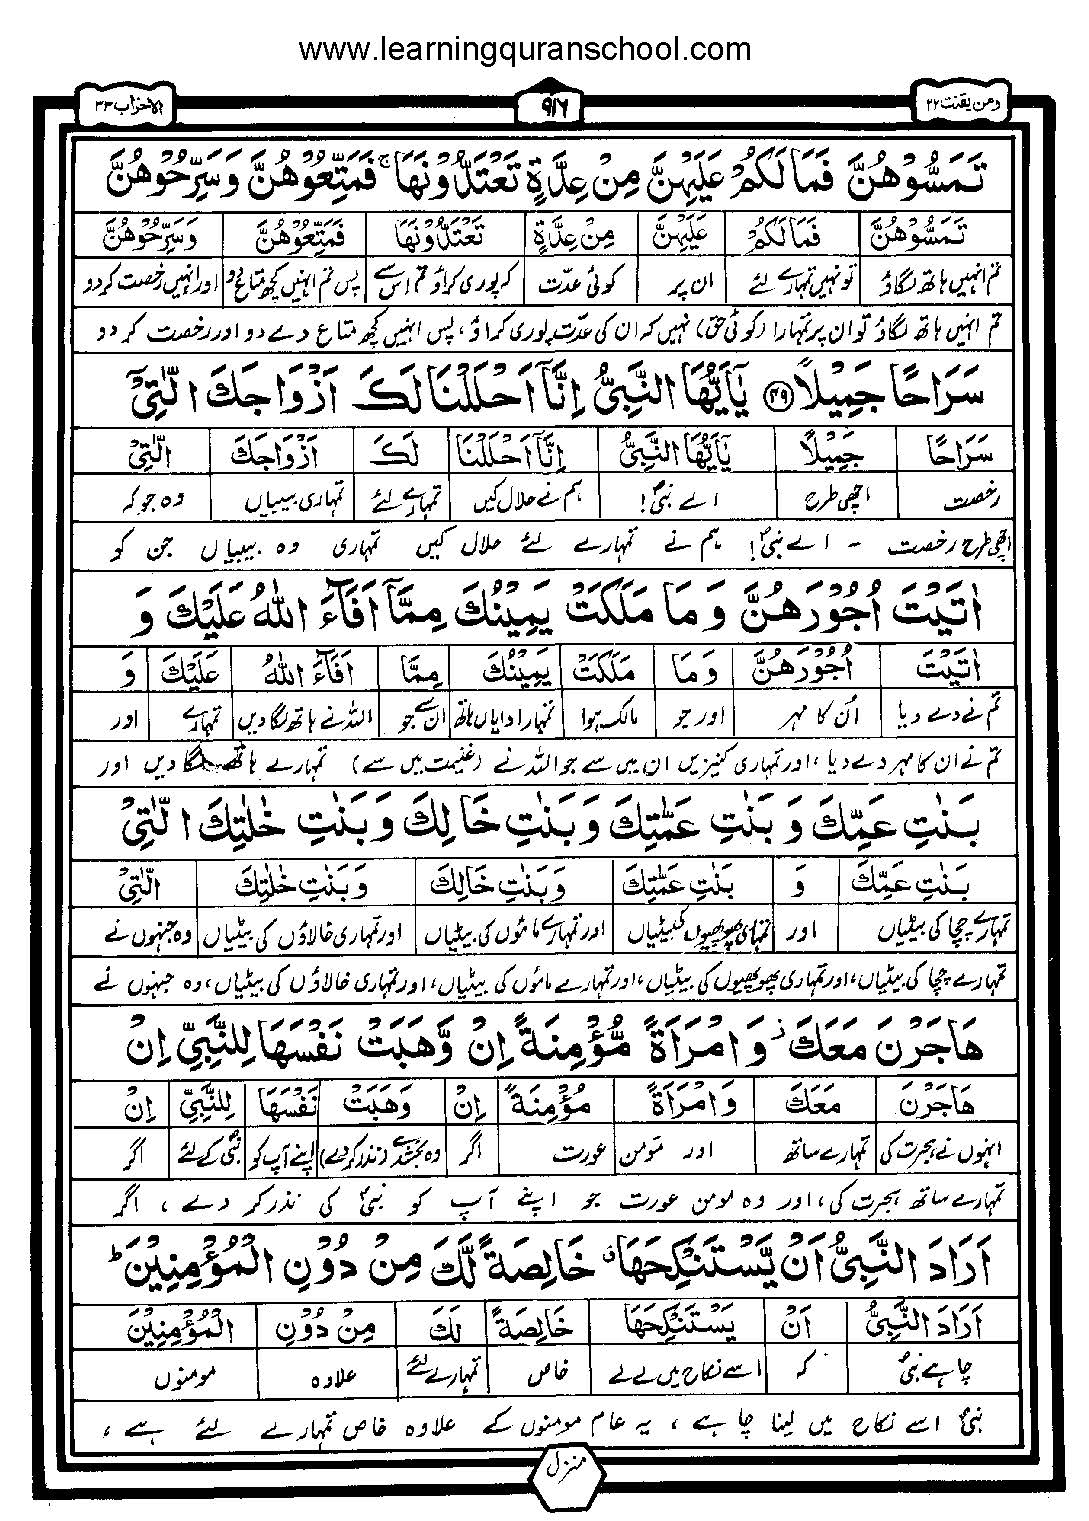 www.learningquranschool.com
ومن یقنت ۲۲ ۹۱۶ الاحزاب ۳۳
تَمَسُّوْهُنَّ فَمَا لَكُمْ عَلَيْهِنَّ مِنْ عِدَّةٍ تَعْتَدُّوْنَهَا ۚ فَمَتِّعُوْهُنَّ وَسَرِّحُوْهُنَّ
تَمَسُّوْهُنَّ فَمَا لَكُمْ عَلَيْهِنَّ مِنْ عِدَّةٍ تَعْتَدُّوْنَهَا فَمَتِّعُوْهُنَّ وَسَرِّحُوْهُنَّ
تم انہیں ہاتھ لگاؤ تو نہیں تمہارے لئے ان پر کوئی عدّت کہ پوری کراؤ تم اس سے پس تم انہیں کچھ متاع دو اور انہیں رخصت کردو
تم انہیں ہاتھ لگاؤ تو ان پر تمہارا (کوئی حق) نہیں کہ ان کی عدّت پوری کراؤ، پس انہیں کچھ متاع دے دو اور رخصت کر دو
سَرَاحًا جَمِيْلًا ۴۹ يٰٓاَيُّهَا النَّبِىُّ اِنَّآ اَحْلَلْنَا لَكَ اَزْوَاجَكَ الّٰتِىْٓ
سَرَاحًا جَمِيْلًا يٰٓاَيُّهَا النَّبِىُّ اِنَّآ اَحْلَلْنَا لَكَ اَزْوَاجَكَ الّٰتِىْٓ
رخصت اچھی طرح اے نبیؐ! ہم نے حلال کیں تمہارے لئے تمہاری بیبیاں وہ جو کہ
اچھی طرح رخصت - اے نبیؐ! ہم نے تمہارے لئے حلال کیں تمہاری وہ بیبیاں جن کو
اٰتَيْتَ اُجُوْرَهُنَّ وَمَا مَلَكَتْ يَمِيْنُكَ مِمَّآ اَفَآءَ اللّٰهُ عَلَيْكَ وَ
اٰتَيْتَ اُجُوْرَهُنَّ وَمَا مَلَكَتْ يَمِيْنُكَ مِمَّآ اَفَآءَ اللّٰهُ عَلَيْكَ وَ
تم نے دے دیا اُن کا مہر اور جو مالک ہوا تمہارا دایاں ہاتھ ان سے جو اللہ نے ہاتھ لگا دیں تمہارے اور
تم نے ان کا مہر دے دیا، اور تمہاری کنیزیں ان میں سے جو اللہ نے (غنیمت میں سے) تمہارے ہاتھ لگا دیں اور
بَنٰتِ عَمِّكَ وَبَنٰتِ عَمّٰتِكَ وَبَنٰتِ خَالِكَ وَبَنٰتِ خٰلٰتِكَ الّٰتِىْ
بَنٰتِ عَمِّكَ وَ بَنٰتِ عَمّٰتِكَ وَبَنٰتِ خَالِكَ وَبَنٰتِ خٰلٰتِكَ الّٰتِىْ
تمہارے چچا کی بیٹیاں اور تمہاری پھوپھیوں کی بیٹیاں اور تمہارے ماموں کی بیٹیاں اور تمہاری خالاؤں کی بیٹیاں وہ جنہوں نے
تمہارے چچا کی بیٹیاں، اور تمہاری پھوپھیوں کی بیٹیاں، اور تمہارے ماموں کی بیٹیاں، اور تمہاری خالاؤں کی بیٹیاں، وہ جنہوں نے
هَاجَرْنَ مَعَكَ ۫ وَامْرَاَةً مُّؤْمِنَةً اِنْ وَّهَبَتْ نَفْسَهَا لِلنَّبِىِّ اِنْ
هَاجَرْنَ مَعَكَ وَامْرَاَةً مُّؤْمِنَةً اِنْ وَهَبَتْ نَفْسَهَا لِلنَّبِىِّ اِنْ
انہوں نے ہجرت کی تمہارے ساتھ اور مؤمن عورت اگر وہ بخشدے (نذر کردے) اپنے آپ کو نبیؐ کے لئے اگر
تمہارے ساتھ ہجرت کی، اور وہ مومن عورت جو اپنے آپ کو نبیؐ کی نذر کر دے، اگر
اَرَادَ النَّبِىُّ اَنْ يَّسْتَنْكِحَهَا ۤ خَالِصَةً لَّكَ مِنْ دُوْنِ الْمُؤْمِنِيْنَ ؕ
اَرَادَ النَّبِىُّ اَنْ يَسْتَنْكِحَهَا خَالِصَةً لَكَ مِنْ دُوْنِ الْمُؤْمِنِيْنَ
چاہے نبیؐ کہ اسے نکاح میں لے لے خاص تمہارے لئے علاوہ مومنوں
نبیؐ اسے نکاح میں لینا چاہے، یہ عام مومنوں کے علاوہ خاص تمہارے لئے ہے،
منزل